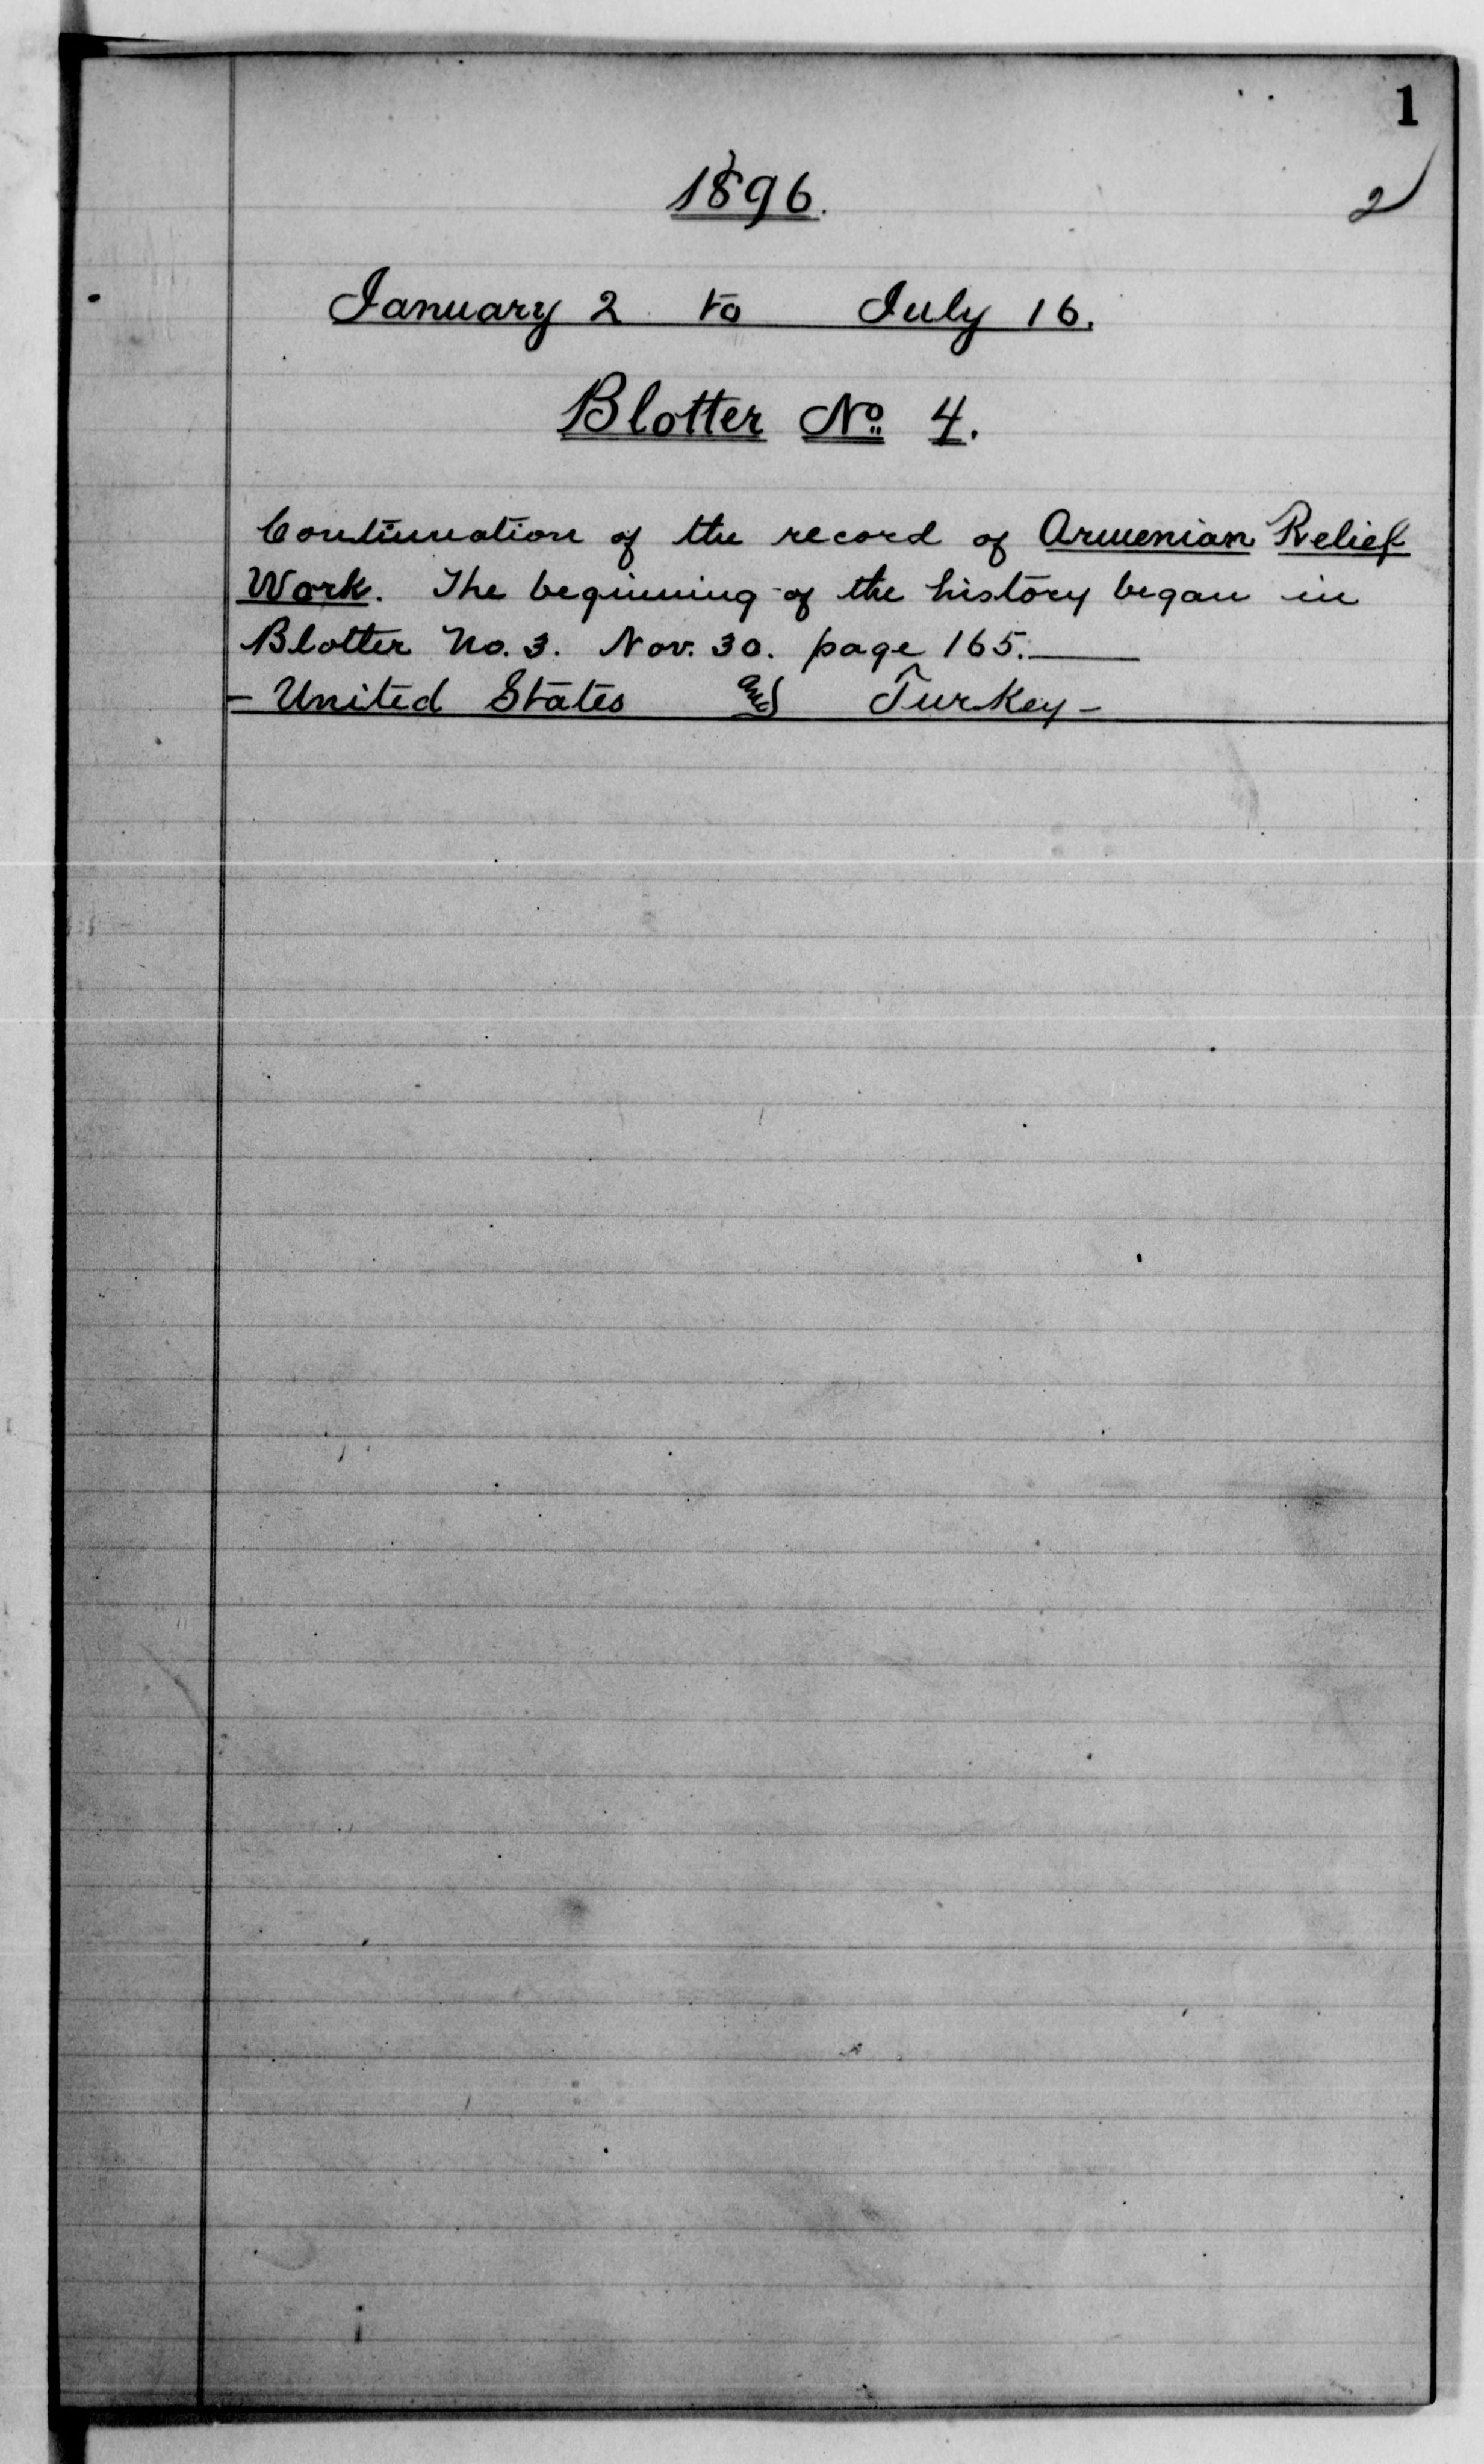 1
1896.
2
January 2 to July 16.
Blotter No. 4.
Continuation of the record of Armenian Relief
Work. The beginning of the history began in
Blotter No. 3. Nov. 30. page 165.—
- United States and Turkey -